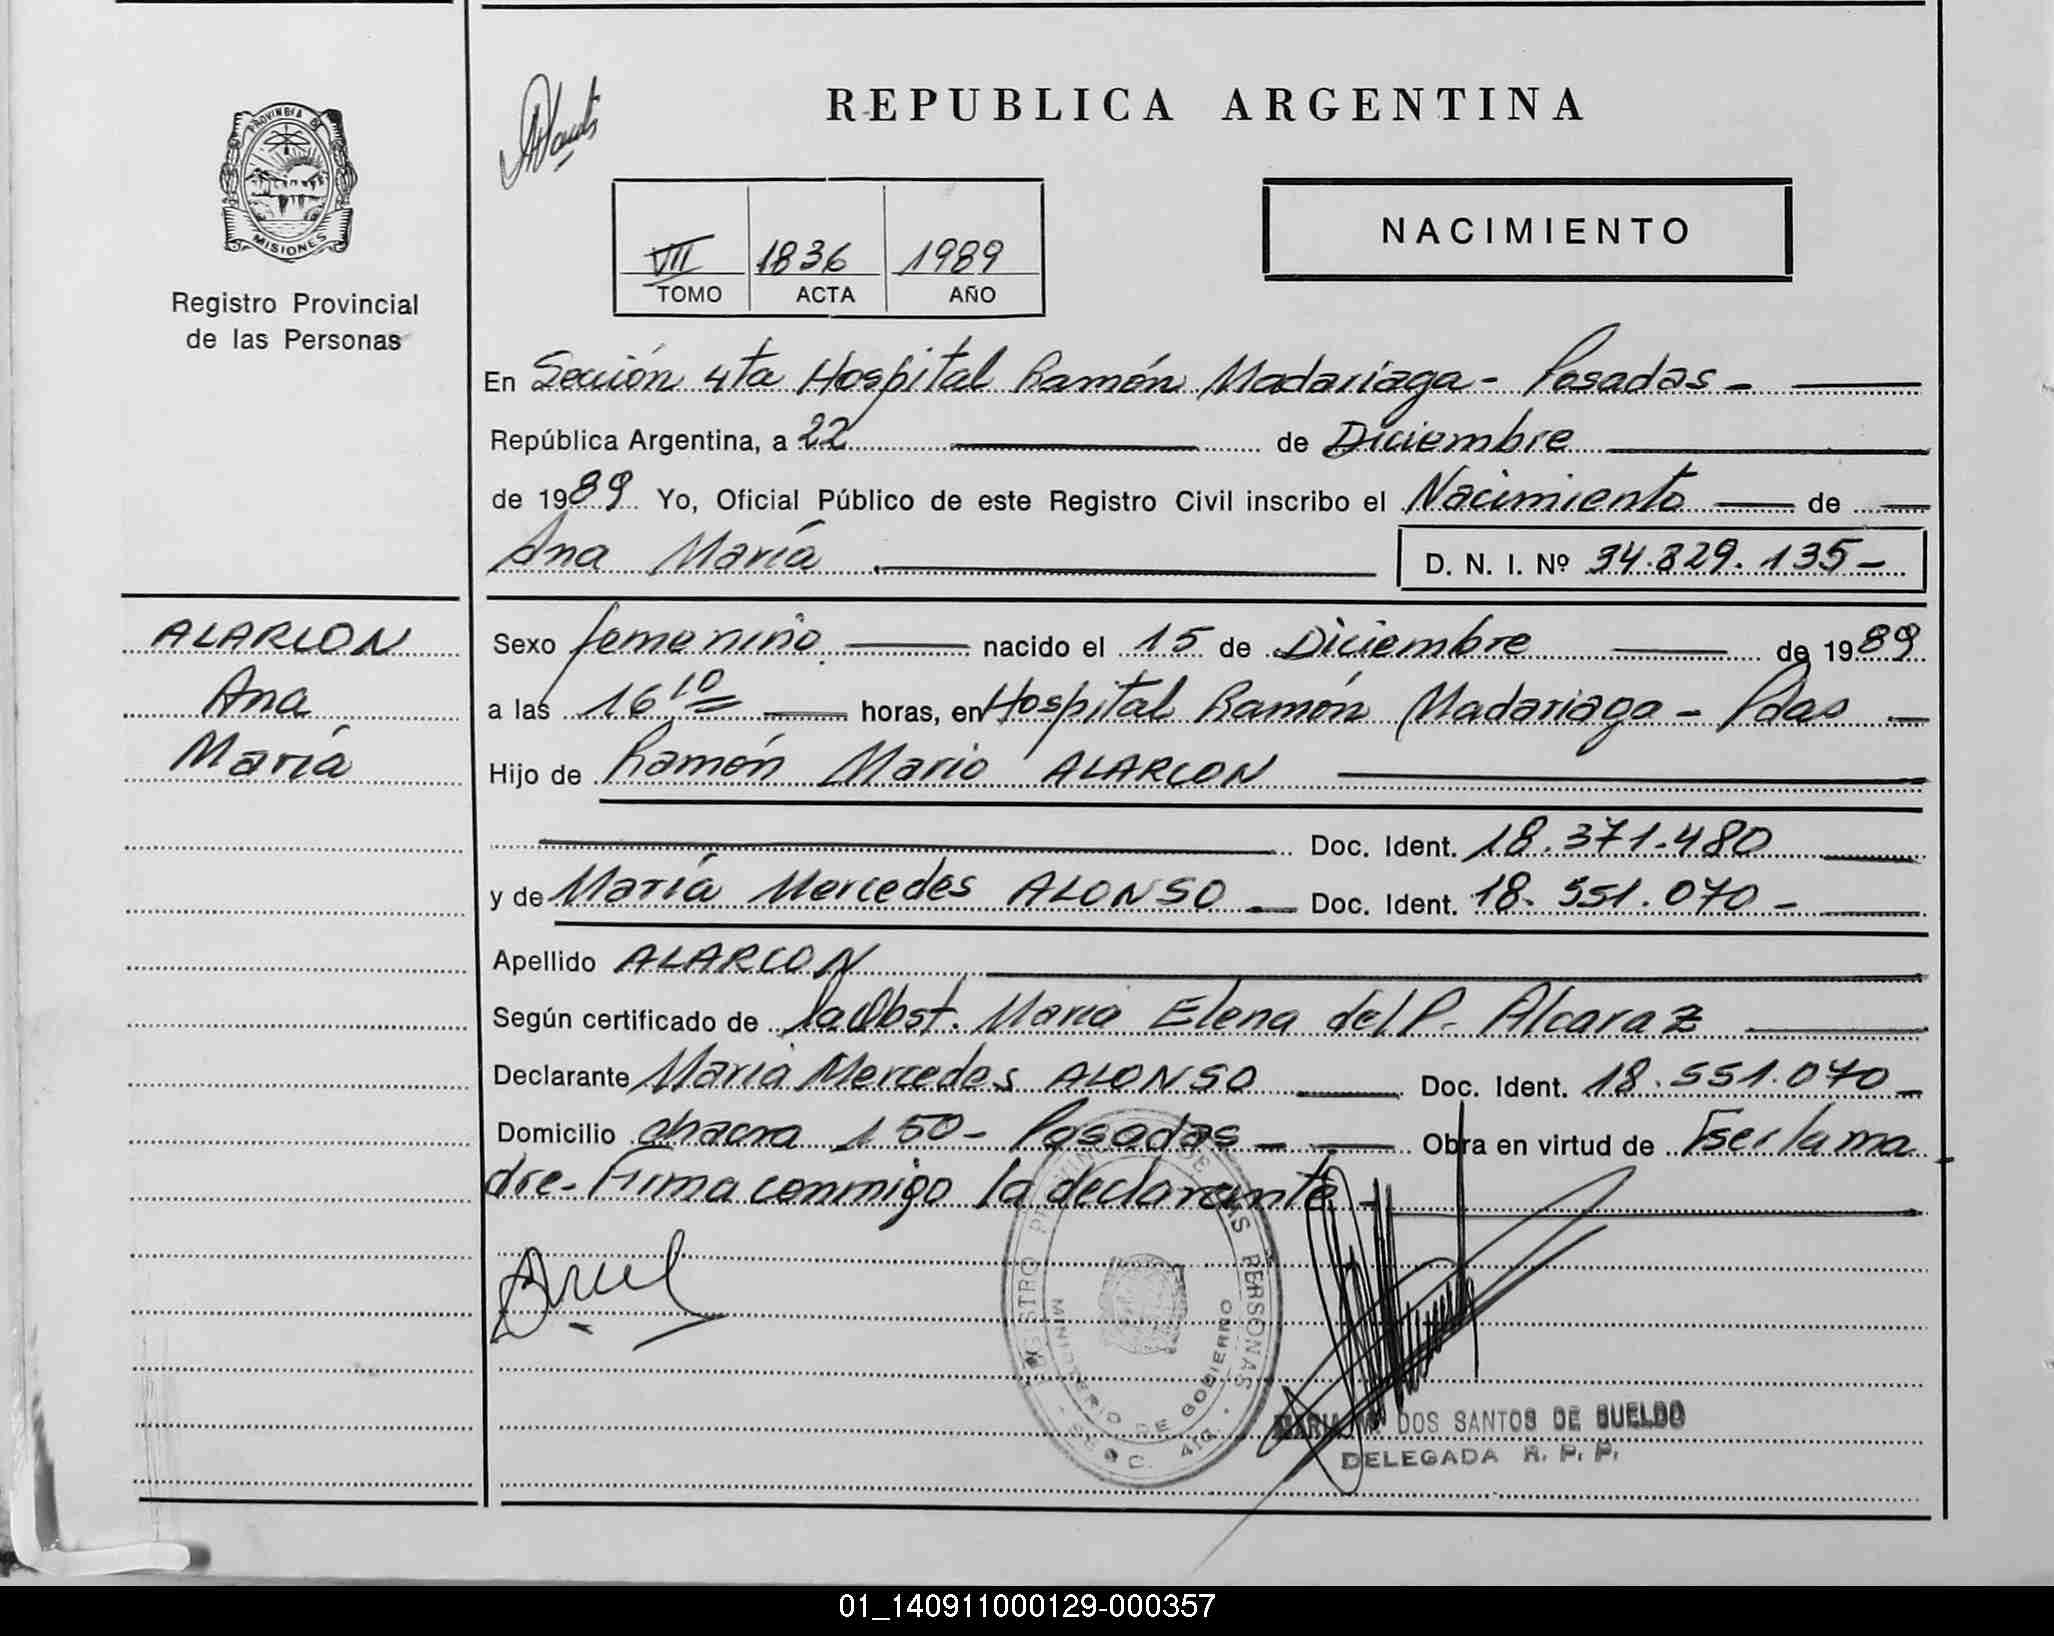 PROVINCIA DE
MISIONES
Registro Provincial
de las Personas
REPUBLICA ARGENTINA
NACIMIENTO
VII 1836 1989
TOMO ACTA AÑO
En Sección 4ta Hospital Ramón Madariaga - Posadas -
República Argentina, a 22 de Diciembre
de 1989 Yo, Oficial Público de este Registro Civil inscribo el Nacimiento de
Ana María D. N. I. Nº 34.829.135-
ALARCON
Ana
María
Sexo femenino nacido el 15 de Diciembre de 1989
a las 16 10 horas, en Hospital Ramón Madariaga - Pdas
Hijo de Ramón Mario ALARCON
Doc. Ident. 18.371.480
y de María Mercedes ALONSO Doc. Ident. 18.551.070 -
Apellido ALARCON
Según certificado de la Obst. María Elena del P. Alcaraz
Declarante María Mercedes ALONSO Doc. Ident. 18.551.070 -
Domicilio chacra 150 - Posadas - Obra en virtud de ser la ma
dre - Firma conmigo la declarante -
REGISTRO PROVINCIAL DE LAS PERSONAS
MINISTERIO DE GOBIERNO
SECC. 4ta.
MARIA M. DOS SANTOS DE SUELDO
DELEGADA R. P. P.
01_140911000129-000357